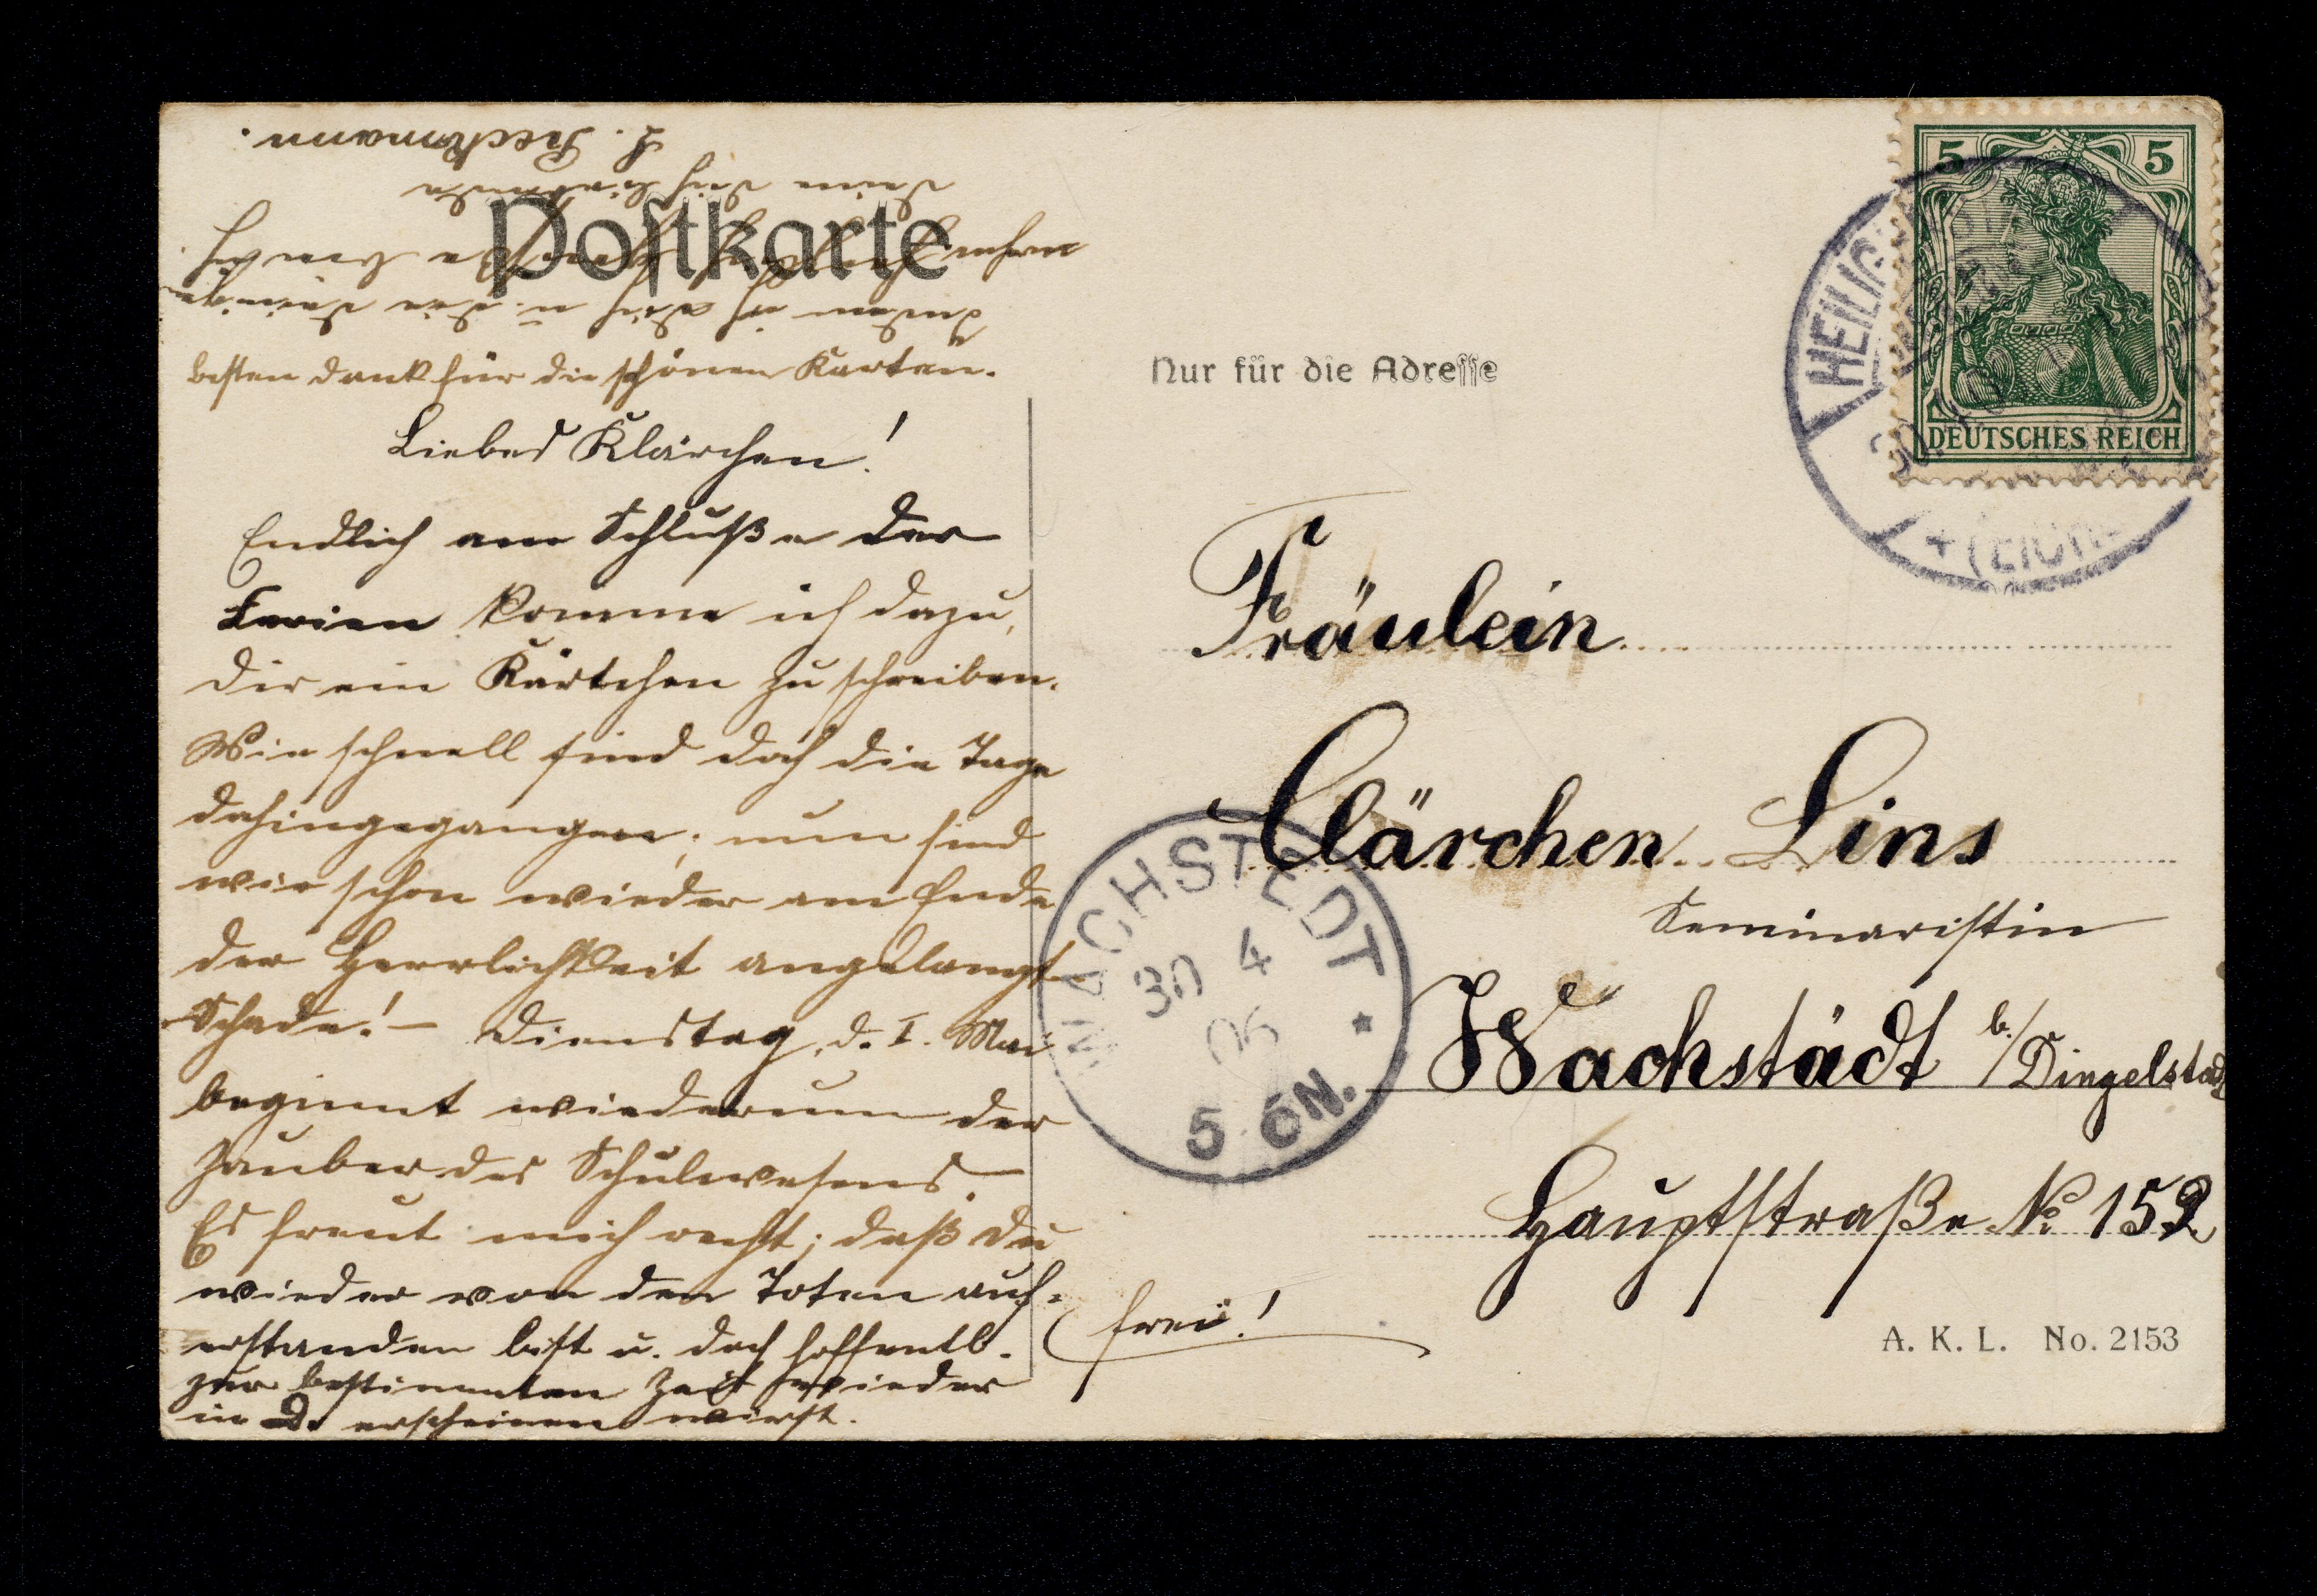 Postkarte
Nur für die Adresse
5 5
DEUTSCHES REICH
HEILIG
+ (EICH
besten Dank für die schönen Karten.
Liebes Klärchen!
Endlich am Schluße der
Ferien komme ich dazu,
Dir ein Kärtchen zu schreiben.
Wie schnell sind doch die Tage
dahingegangen; nun sind
wir schon wieder am Ende
der Herrlichkeit angelangt.
Schade! – Dienstag, d. I. Mai
beginnt wiederum der
Zauber des Schulwesens.
Es freut mich recht, daß Du
wieder von den Toten auf-
erstanden bist u. doch hoffentl.
zur bestimmten Zeit wieder
in D. erscheinen wirst.
Indem ich Dich u. die Deinigen
Deine Dich liebende
Fräulein
Clärchen Lins
Seminaristin
Wachstädt b./Dingelstädt
Hauptstraße No 152
frei!
WACHSTEDT
30 4
06
5 6N.
A. K. L. No. 2153